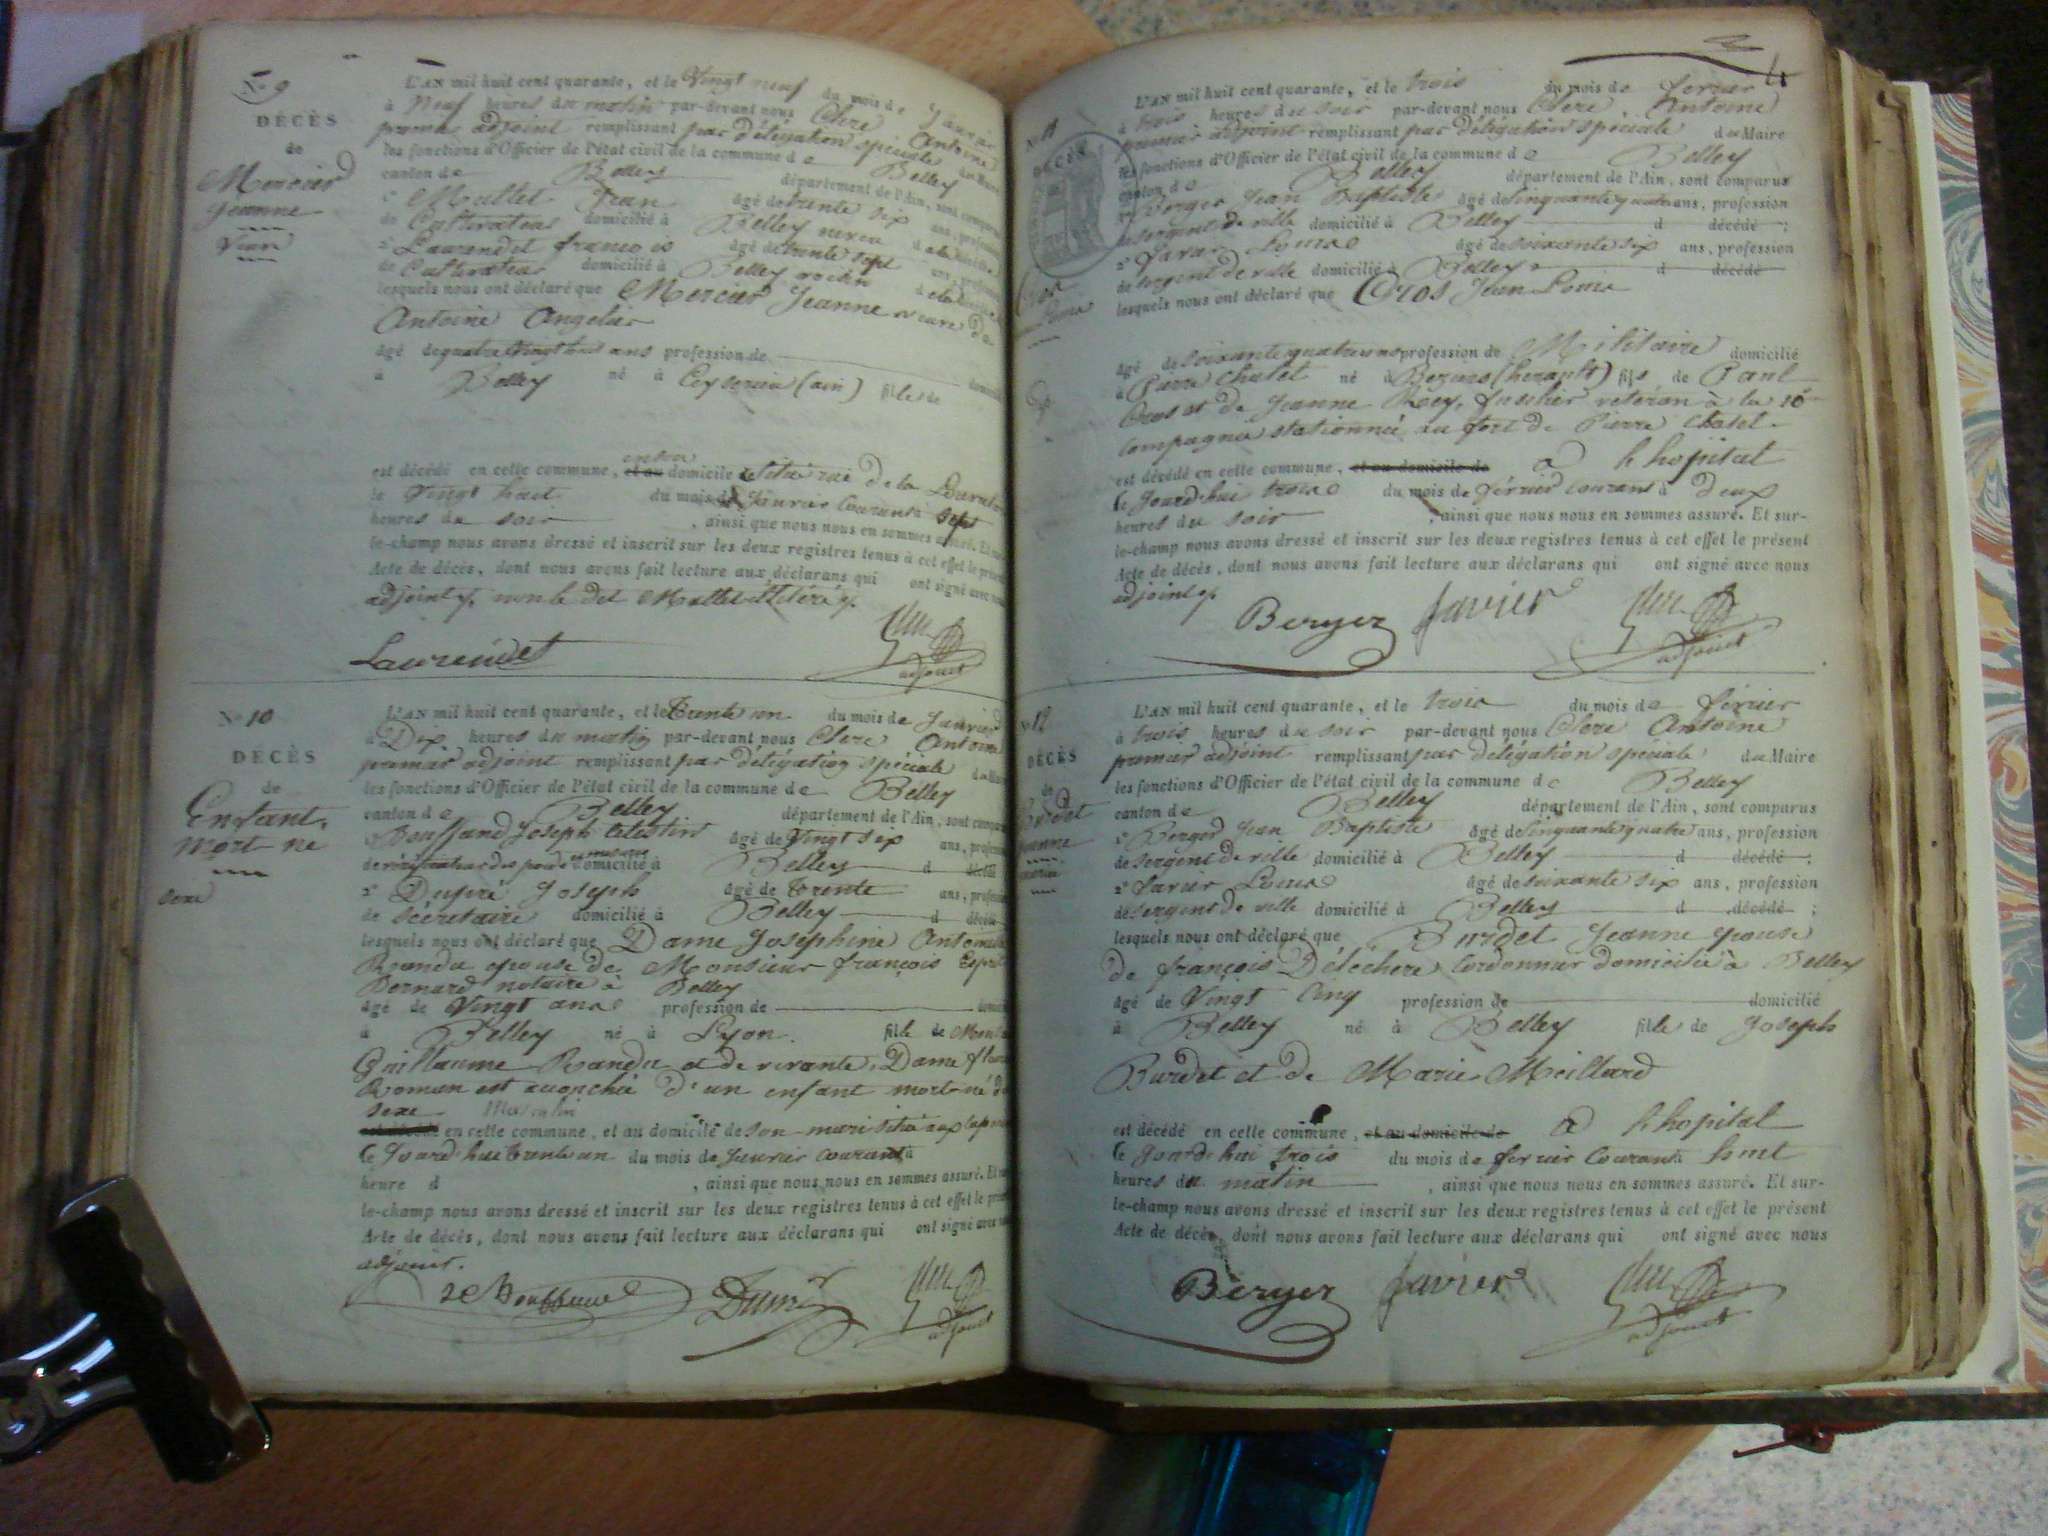 No 9
DÉCÈS
de
Mercier
Jeanne
L'AN mil huit cent quarante, et le Vingt neuf du mois de Janvier
à Neuf heures du matin par-devant nous Clerc Antoine
premier adjoint remplissant par délégation spéciale du Maire
les fonctions d'Officier de l'état civil de la commune de Belley
canton de Belley département de l'Ain, sont comparus
1° Mallet Jean âgé de trente six ans, profession
de Cultivateur domicilié à Belley
2° Laurendet françois âgé de trente sept ans, profession
de Cultivateur domicilié à Belley voisin de la
lesquels nous ont déclaré que Mercier Jeanne veuve D'
Antoine Angelier
âgé de quatre vingt ans profession de
à Belley né à Ceyserieu (ain) fille de
est décédé en cette commune, et au domicile situé rue de la
le Vingt huit du mois de Janvier Courant à sept
heures du soir, ainsi que nous nous en sommes assuré. Et sur-
le-champ nous avons dressé et inscrit sur les deux registres tenus à cet effet le présent
Acte de décès, dont nous avons fait lecture aux déclarans qui ont signé avec nous
adjoint non le dit Mallet illétéré
Laurendet
adjoint
No 10
DÉCÈS
de
Enfant
mort né
sexe
L'AN mil huit cent quarante, et le trente un du mois de Janvier
à Dix heures du matin par-devant nous Clerc Antoine
premier adjoint remplissant par délégation spéciale du Maire
les fonctions d'Officier de l'état civil de la commune de Belley
canton de Belley département de l'Ain, sont comparus
1° Bouffand Joseph Celestin âgé de Vingt six ans, profession
de vérificateur des poids et mesures domicilié à Belley d décédé
2° Dupré Joseph âgé de trente ans, profession
de sécretaire domicilié à Belley d décédé
lesquels nous ont déclaré que Dame Josephine Antoinette
Randu epouse de Monsieur françois Esprit
Bernard notaire à Belley
âgé de Vingt ans profession de
à Belley né à Lyon fille de
Guillaume Randu et de vivante Dame
Roman est accouchée d'un enfant mort-né du
sexe Masculin
en cette commune, et au domicile de son mari situé
le jourd'hui trente un du mois de Janvier courant à
heure d, ainsi que nous nous en sommes assuré. Et sur-
le-champ nous avons dressé et inscrit sur les deux registres tenus à cet effet le présent
Acte de décès, dont nous avons fait lecture aux déclarans qui ont signé avec nous
adjoint.
adjoint
No 11
DÉCÈS
L'AN mil huit cent quarante, et le trois du mois de février
à trois heures du soir par-devant nous Clerc Antoine
premier adjoint remplissant par délégation spéciale du Maire
les fonctions d'Officier de l'état civil de la commune de Belley
canton de Belley département de l'Ain, sont comparus
1° Berger Jean Baptiste âgé de Cinquante quatre ans, profession
de sergent de ville domicilié à Belley d décédé ;
2° Favier Louis âgé de soixante six ans, profession
de sergent de ville domicilié à Belley d décédé
lesquels nous ont déclaré que Cros Jean Louis
âgé de soixante quatre ans profession de Militaire domicilié
à Pierre Chatel né à Beziers (herault) fils de Paul
Cros et de Jeanne Rey, fusilier vétéran à la 10e
compagnie stationnée au fort de Pierre Chatel
est décédé en cette commune, et au domicile de à l'hopital
le jourd'hui trois du mois de février courant à deux
heures du soir, ainsi que nous nous en sommes assuré. Et sur-
le-champ nous avons dressé et inscrit sur les deux registres tenus à cet effet le présent
Acte de décès, dont nous avons fait lecture aux déclarans qui ont signé avec nous
adjoint
Berger Favier
adjoint
No 12
DÉCÈS
de
Burdet
Jeanne
L'AN mil huit cent quarante, et le trois du mois de février
à trois heures du soir par-devant nous Clerc Antoine
premier adjoint remplissant par délégation spéciale du Maire
les fonctions d'Officier de l'état civil de la commune de Belley
canton de Belley département de l'Ain, sont comparus
1° Berger Jean Baptiste âgé de Cinquante quatre ans, profession
de sergent de ville domicilié à Belley d décédé ;
2° Favier Louis âgé de soixante six ans, profession
de sergent de ville domicilié à Belley d décédé ;
lesquels nous ont déclaré que Burdet Jeanne epouse
de françois Délechere Cordonnier domicilié à Belley
âgé de Vingt Cinq profession de domicilié
à Belley né à Belley fille de Joseph
Burdet et de Marie Meillard
est décédé en cette commune, et au domicile de à l'hopital
le jourd'hui trois du mois de février Courant à huit
heures du matin, ainsi que nous nous en sommes assuré. Et sur-
le-champ nous avons dressé et inscrit sur les deux registres tenus à cet effet le présent
Acte de décès, dont nous avons fait lecture aux déclarans qui ont signé avec nous
Berger Favier
adjoint